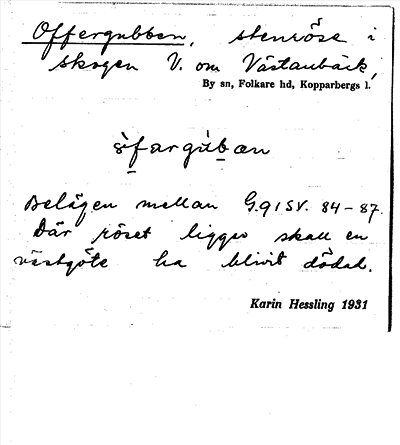 Offergubben, stenröse i
skogen V. om Västanbäck,
By sn, Folkare hd, Kopparbergs l.
òfargúbæn
Belägen mellan G.91 SV. 84-87.
Där röset ligger skall en
västgöte ha blivit dödad.
Karin Hessling 1931